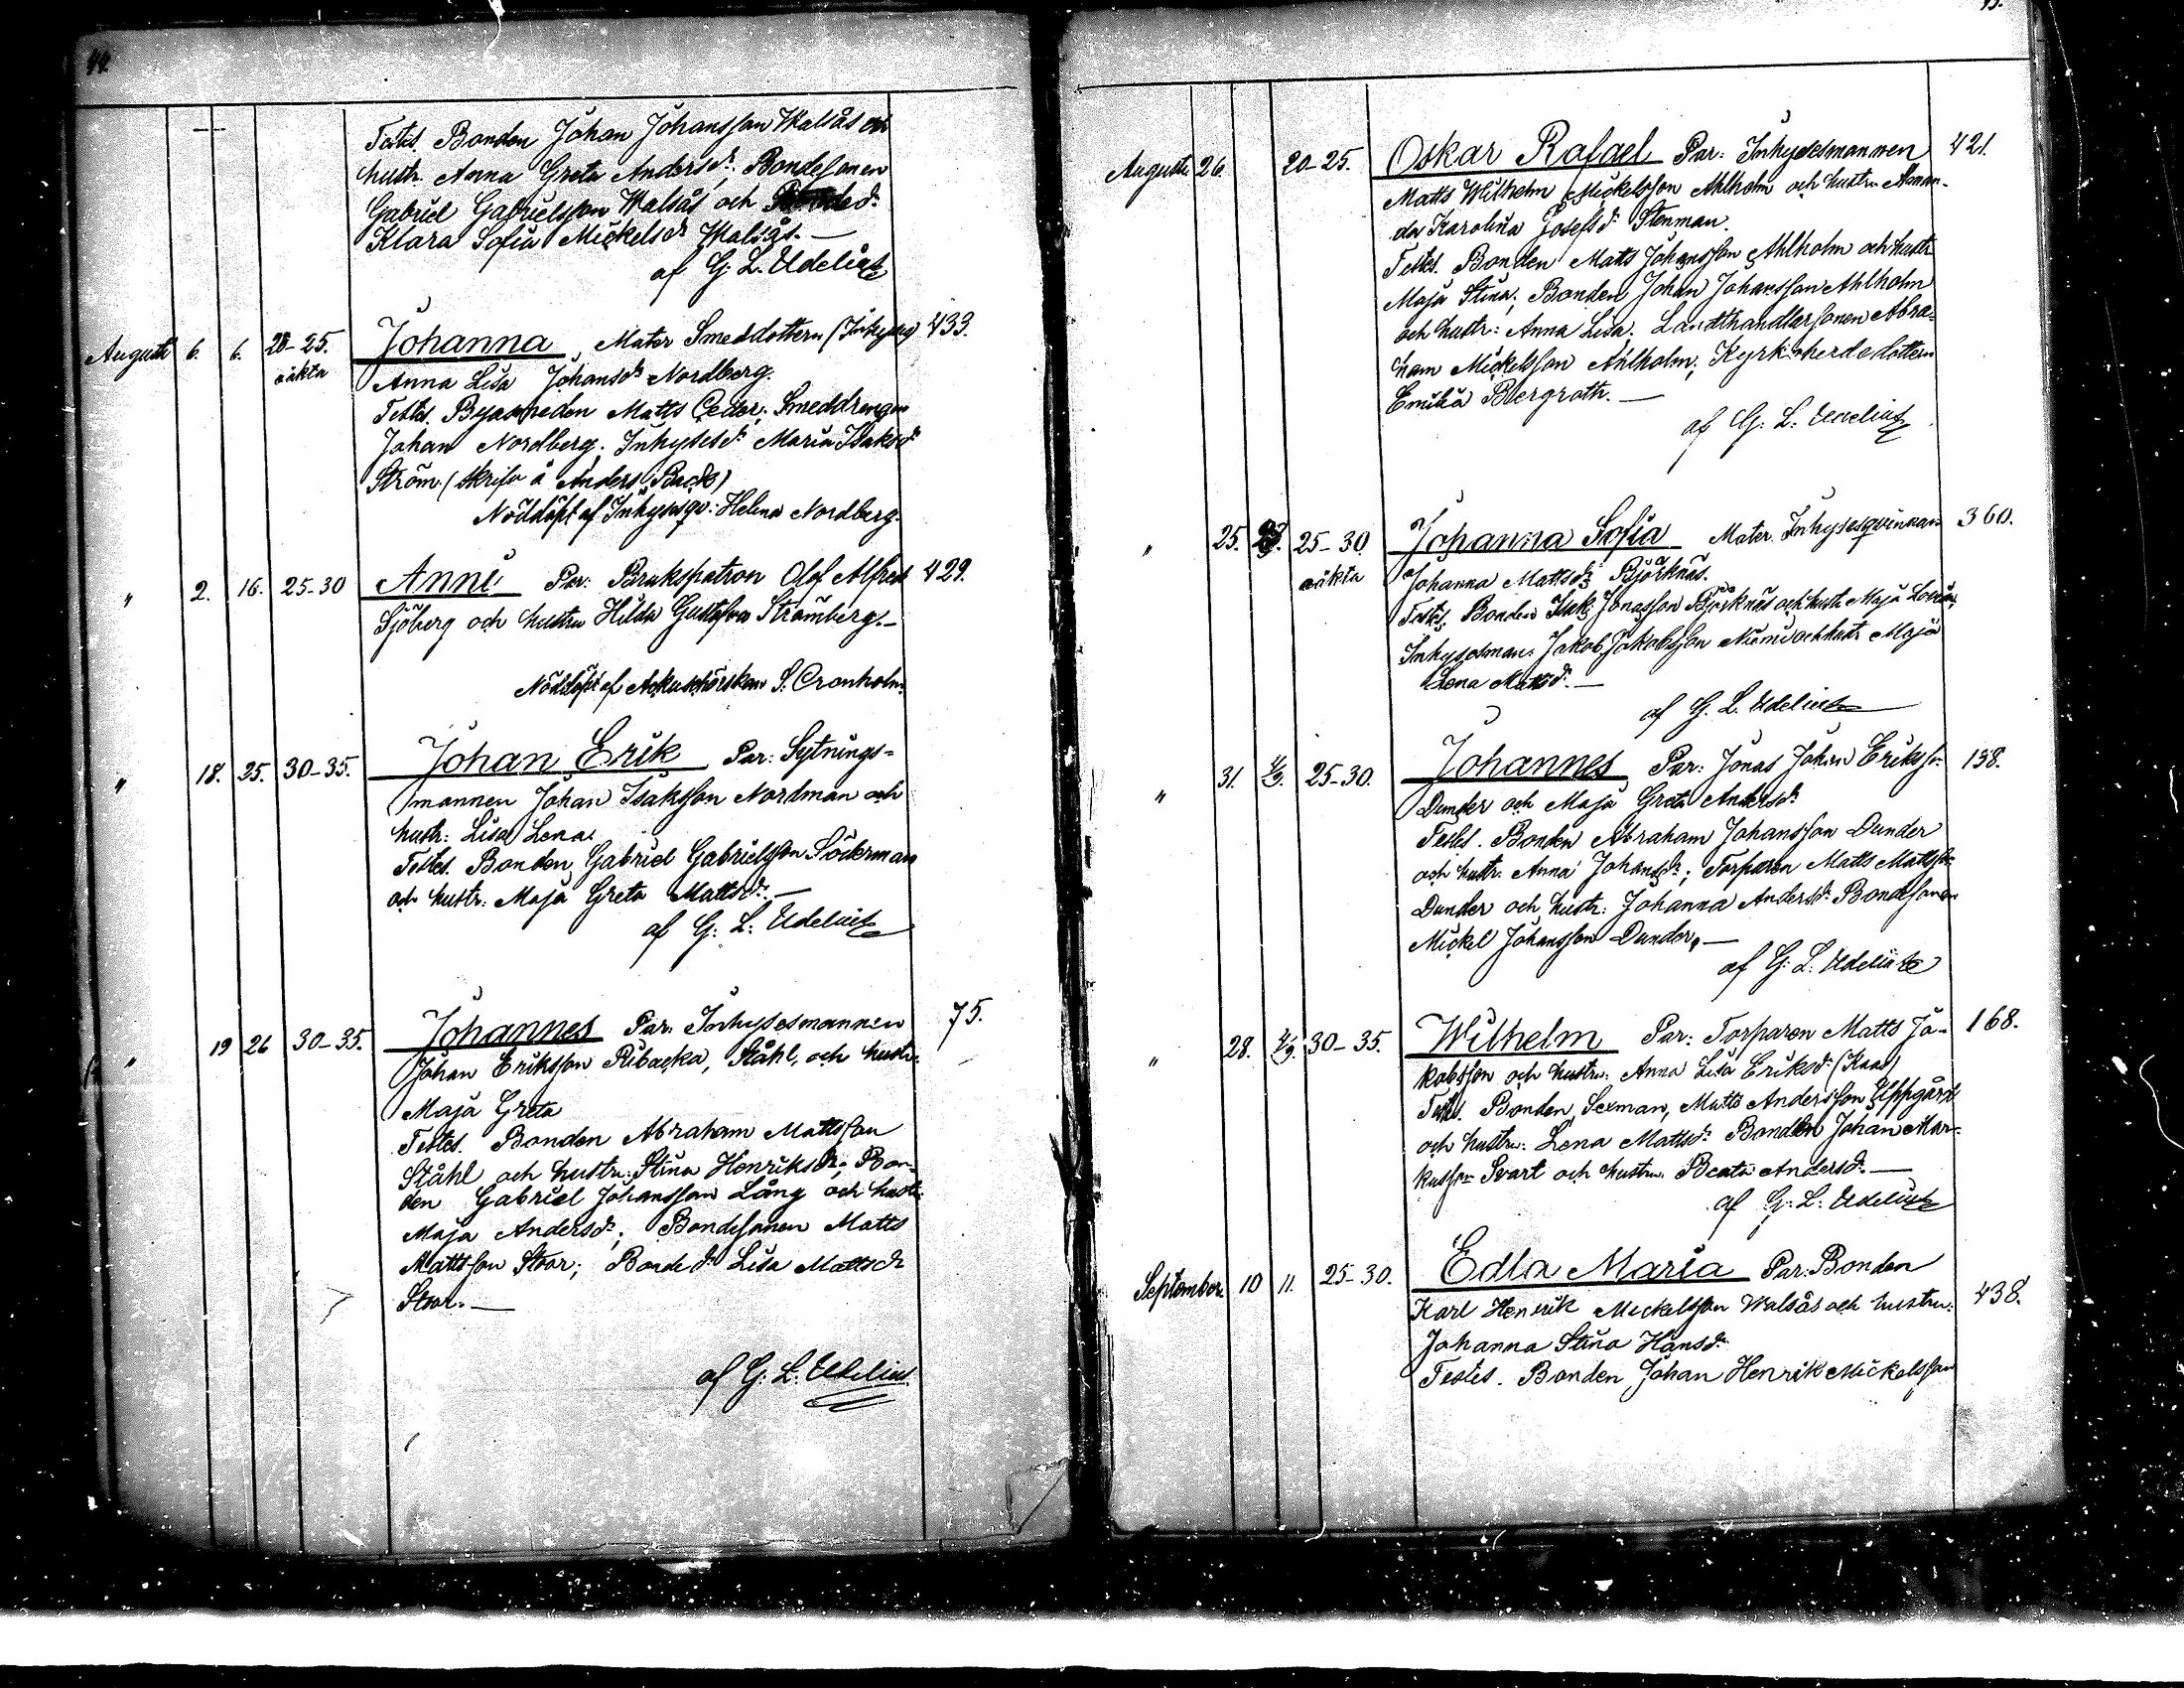 44.
Testes. Bonden Johan Johansson Walsås och
hustr. Anna Greta Andersdr. Bondesonen
Gabriel Gabrielsson Walsås och
Klara Sofia Mickelsdr Walsås. —
af G. L. Udelius
Augusti 6. 6. 20-25. Johanna Mater Smeddottern (Inhyseg) 433.
oäkta Anna Lisa Johansdr Nordberg.
Testes. Byasmeden Matts Ceder; Smeddrengen
Johan Nordberg; Inhysesdr Maria Isaksdr
Ström. (skrifven å Anders Back)
Nöddöpt af Inhysesqv: Helena Nordberg.
" 2. 16. 25-30 Anni Par: Brukspatron Olof Alfred 429.
Sjöberg och hustru Hilda Gustafva Strömberg. —
Nöddöpt af Ackuschörskan S. Cronholm.
" 18. 25. 30-35. Johan Erik Par: Sytnings=
mannen Johan Isaksson Nordman och
hustr: Lisa Lena
Testes. Bonden Gabriel Gabrielsson Söderman
och hustr: Maja Greta Mattsdr. —
af G. L. Udelius
" 19 26 30-35. Johannes Par: Inhysesmannen 75.
Johan Eriksson Ribacka, Ståhl, och hustr.
Maja Greta
Testes. Bonden Abraham Mattsson
Ståhl och hustru: Stina Henriksdr; Bon-
den Gabriel Johansson Lång och hustr.
Maja Andersdr; Bondesonen Matts
Mattsson Stoor; Bondedr Lisa Mattsdr
Stoor. —
af G. L. Udelius.
45.
Augusti 26. 20-25. Oskar Rafael Par: Inhysesmannen 421.
Matts Wilhelm Mickelsson Ahlholm och hustru Aman-
da Karolina Josefsdr Stenman.
Testes. Bonden Matts Johansson Ahlholm och hustr
Maja Stina; Bonden Johan Johansson Ahlholm
och hustr: Anna Lisa; Landthandlarsonen Abra=
ham Mickelsson Ahlholm; Kyrkoherdedottern
Emilia Bergroth. —
af G. L. Udelius
" 25. 25-30. Johanna Sofia Mater. Inhysesqvinnan 360.
oäkta Johanna Mattsdr Björknäs.
Testes. Bonden Isak Jonasson Björknäs och hustr Maja Lovisa;
Inhysesman: Jakob Jakobsson och hustr Maja
Lena Mattsdr. —
af G. L. Udelius
" 31. 25-30. Johannes Par: Jonas Johan Eriksson 138.
Dunder och Maja Greta Andersdr
Testes. Bonden Abraham Johansson Dunder
och hustr. Anna Johansdr; Torparen Matts Mattsson
Dunder och hustr: Johanna Andersdr. Bondesonen
Mickel Johansson Dunder. —
af G. L. Udelius
" 28. 30-35. Wilhelm Par: Torparen Matts Ja- 168.
kobsson och hustru: Anna Lisa Eriksdr (Kaas)
Testes. Bonden, Sexman, Matts Andersson Uppgård
och hustru: Lena Mattsdr Bonden Johan Mar-
kusson Svart och hustru. Beata Andersdr. —
af G. L. Udelius
September 10 11. 25-30. Edla Maria Par: Bonden
Karl Henrik Mickelsson Walsås och hustru: 438.
Johanna Stina Hansdr
Testes. Bonden Johan Henrik Mickelsson